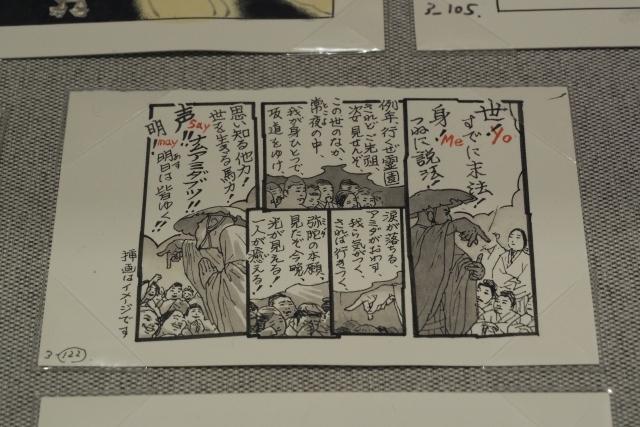 3-105.
世! Yo
すでに末法!
身! Me
つねに説法!
例年行くぜ霊園
されどご先祖
次女見せんぞ
この世のなか、
常夜の中、
とこよ
我が身ひとつで、
坂道をゆけ、
涙が落ちる
アミダがおわす、
我ら気がつく、
されば行きつく、
弥陀の本願、
ミダ
見たぞ今晩、
光が見える!
人が癒える!
思い知る他力!
世を生きる馬力!
声 Say
ナムアミダブツ!!
明! may
明日は皆ゆく!!
あす
挿画はイメージです
3-122